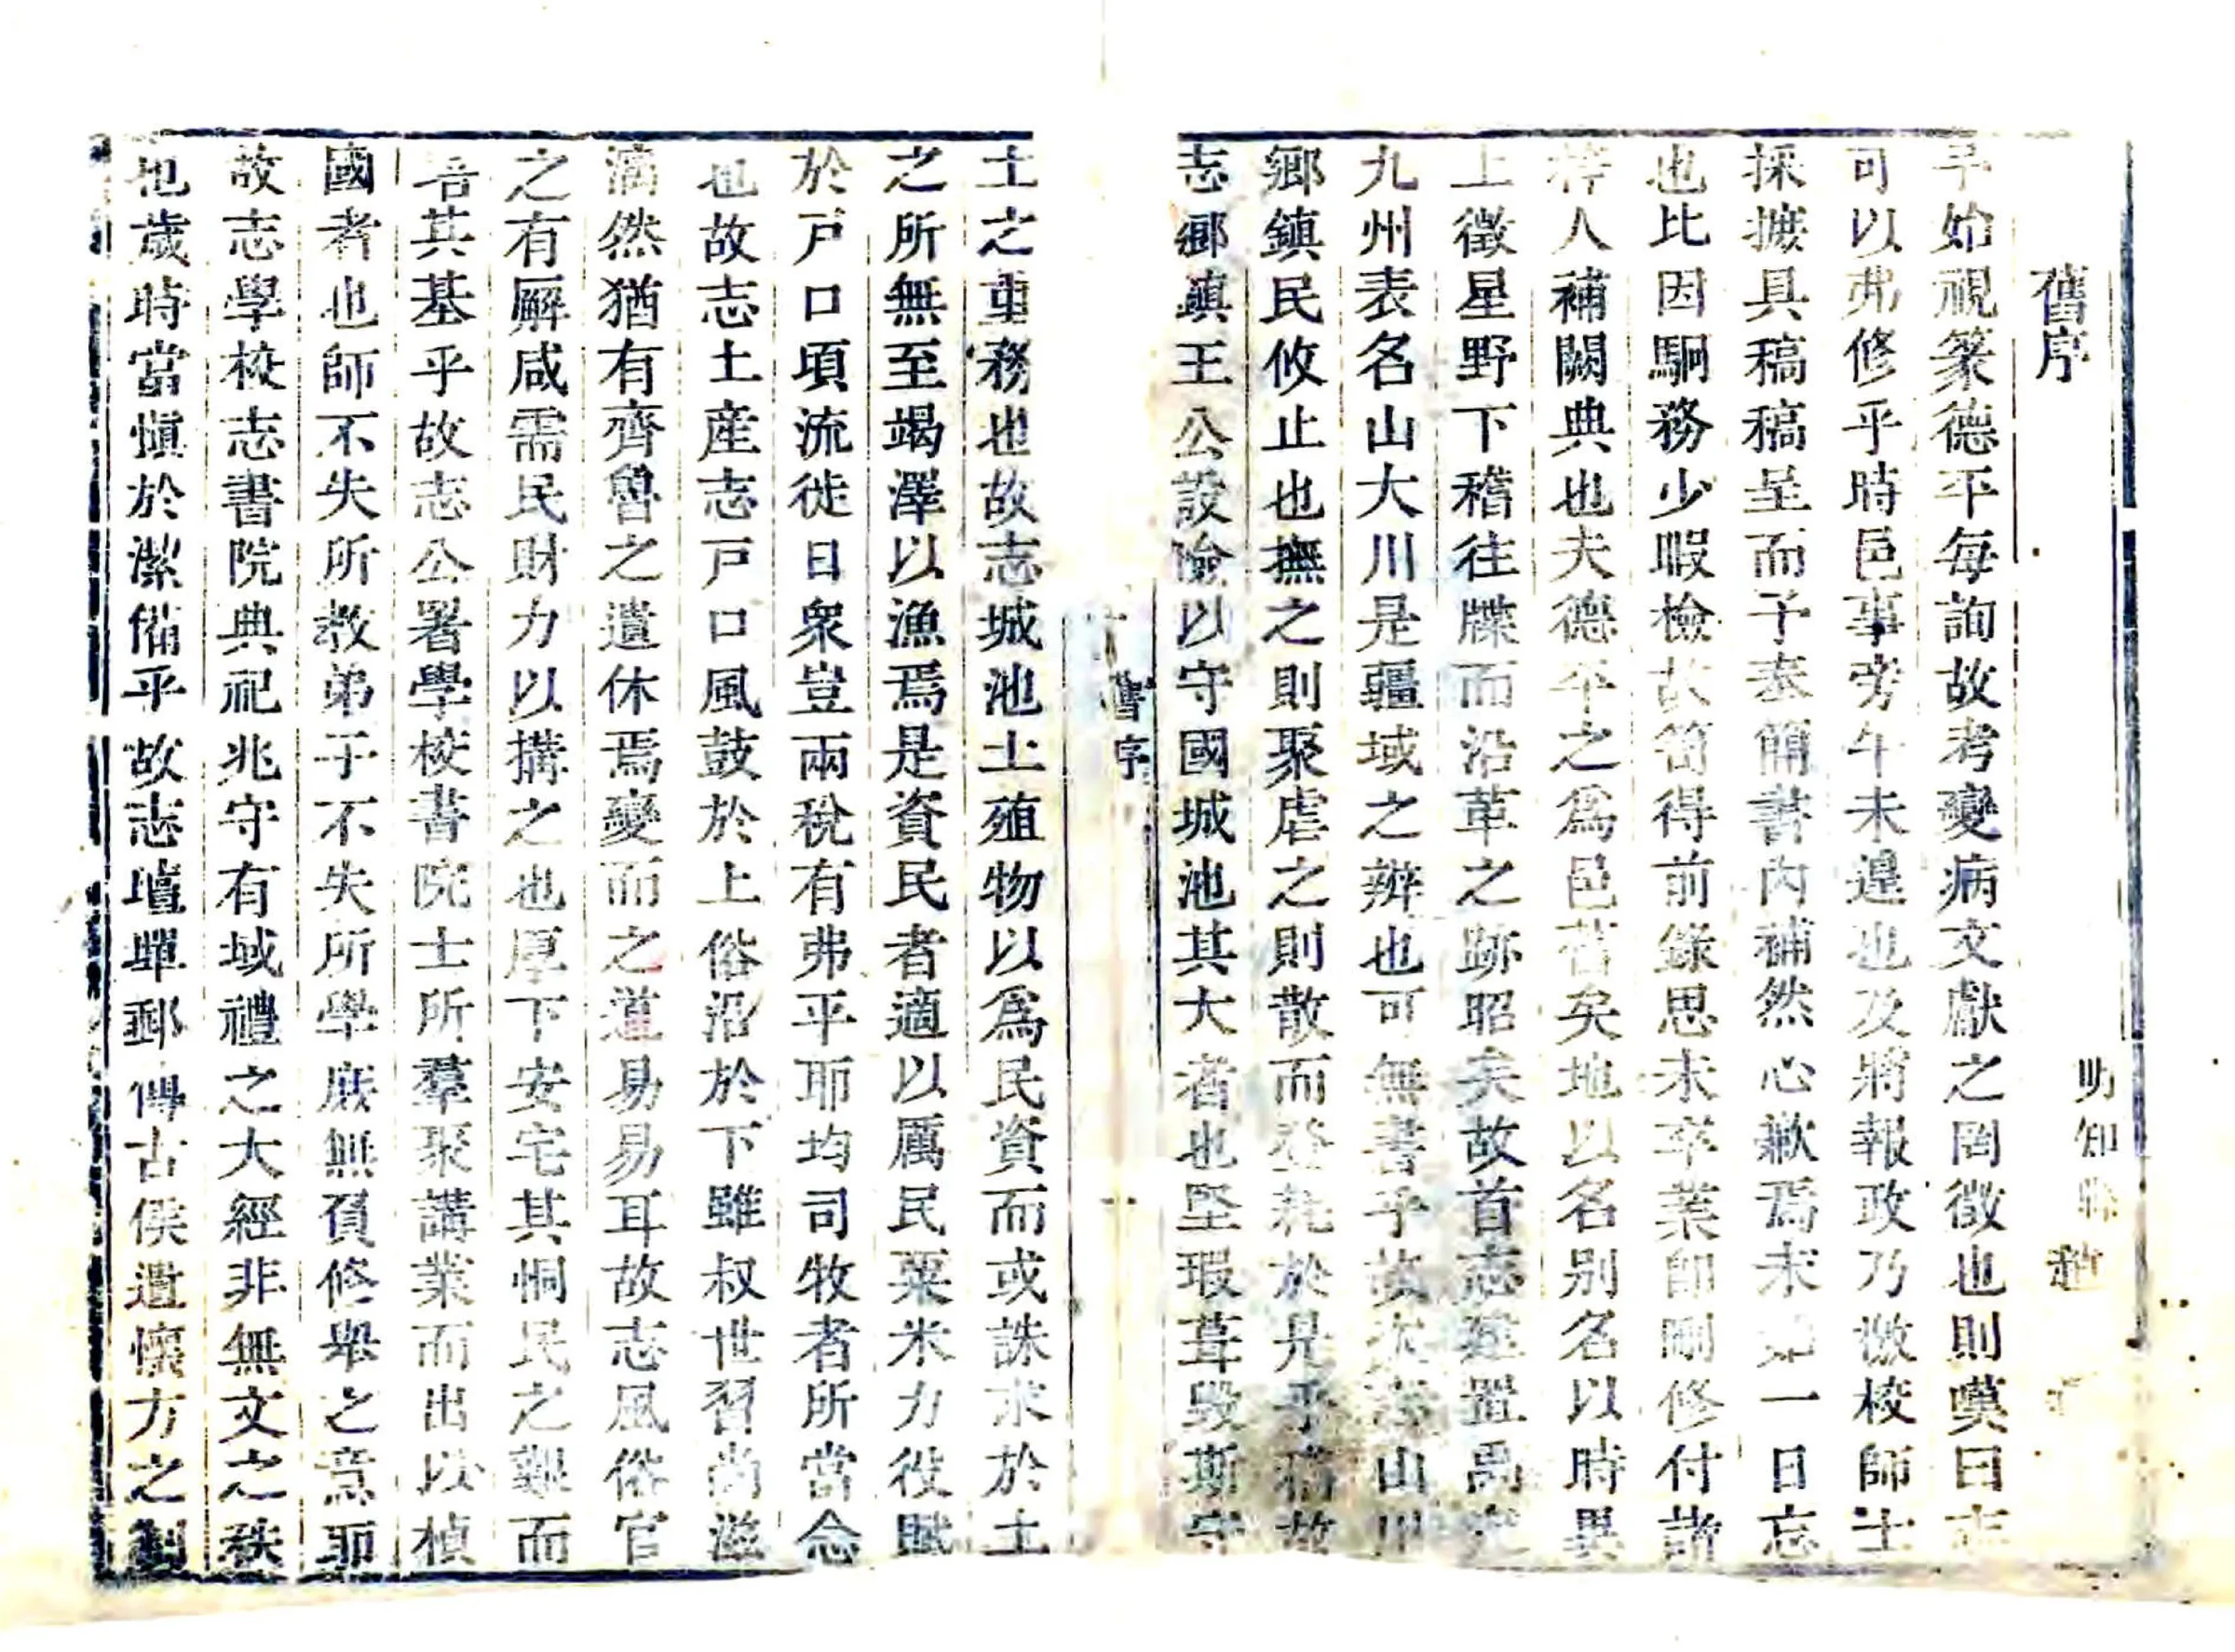 舊序
明知縣趙
予始視篆德平每詢故考變病文獻之罔徵也則嘆曰志
可以弗修乎時邑事旁午未遑也及將報政乃檄校師士
採摭具稿稿呈而予奉簡書內補然心歉焉未一日忘
也比因駉務少暇檢故笥得前錄思未卒業卽刪修付諸
梓人補闕典也夫德平之爲邑舊矣地以名別名以時異
上徵星野下稽往牒而沿革之跡昭矣故首志建置禹定
九州表名山大川是疆域之辨也可無書乎故次志山川
鄉鎮民攸止也撫之則聚虐之則散而登耗於是乎稽故
志鄉鎮王公設險以守國城池其大者也堅瑕葺毀斯守
舊序
土之重務也故志城池土殖物以爲民資而或誅求於土
之所無至竭澤以漁焉是資民者適以厲民粟米力役賦
於戸口頃流徙日衆豈兩稅有弗平耶均司牧者所當念
也故志土産志戸口風鼓於上俗沿於下雖叔世習尚滋
漓然猶有齊魯之遺休焉變而之道易易耳故志風俗官
之有廨咸需民財力以搆之也厚下安宅其恫民之艱而
吾其基乎故志公署學校書院士所羣聚講業而出以楨
國者也師不失所敎弟子不失所學庶無負修舉之意耶
故志學校志書院典祀兆守有域禮之大經非無文之秩
也歲時當愼於潔備乎故志壇墠郵傳古侯遺懷方之制